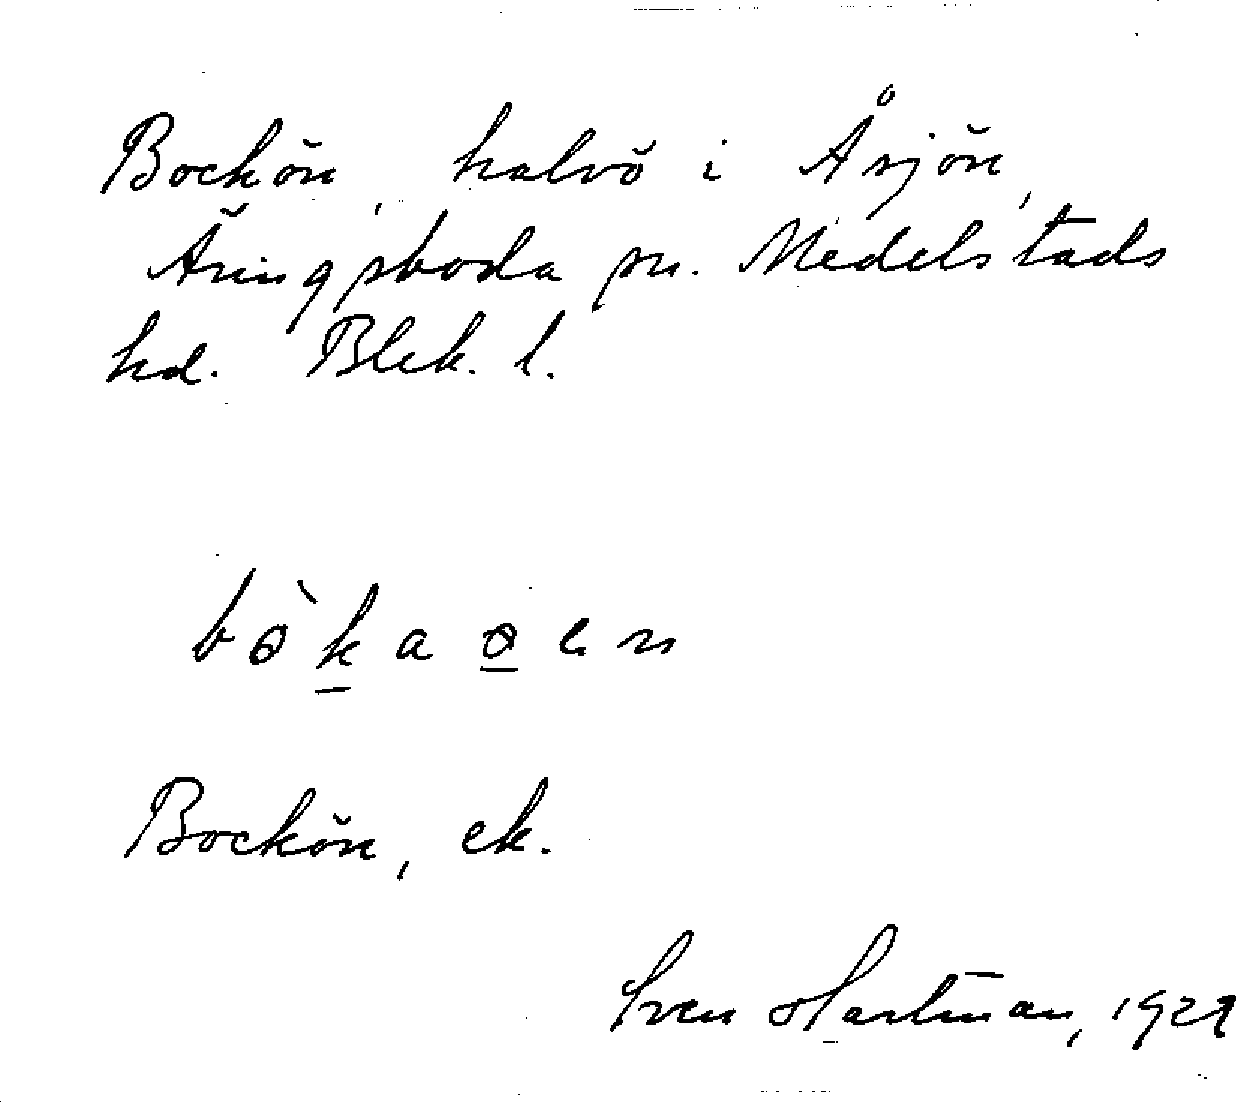 Bockön, halvö i Årsjön,
Äringsboda sn. Medelstads
hd. Blek. l.
bòkaøen
Bockön, ek.
Sven Hartman, 1929